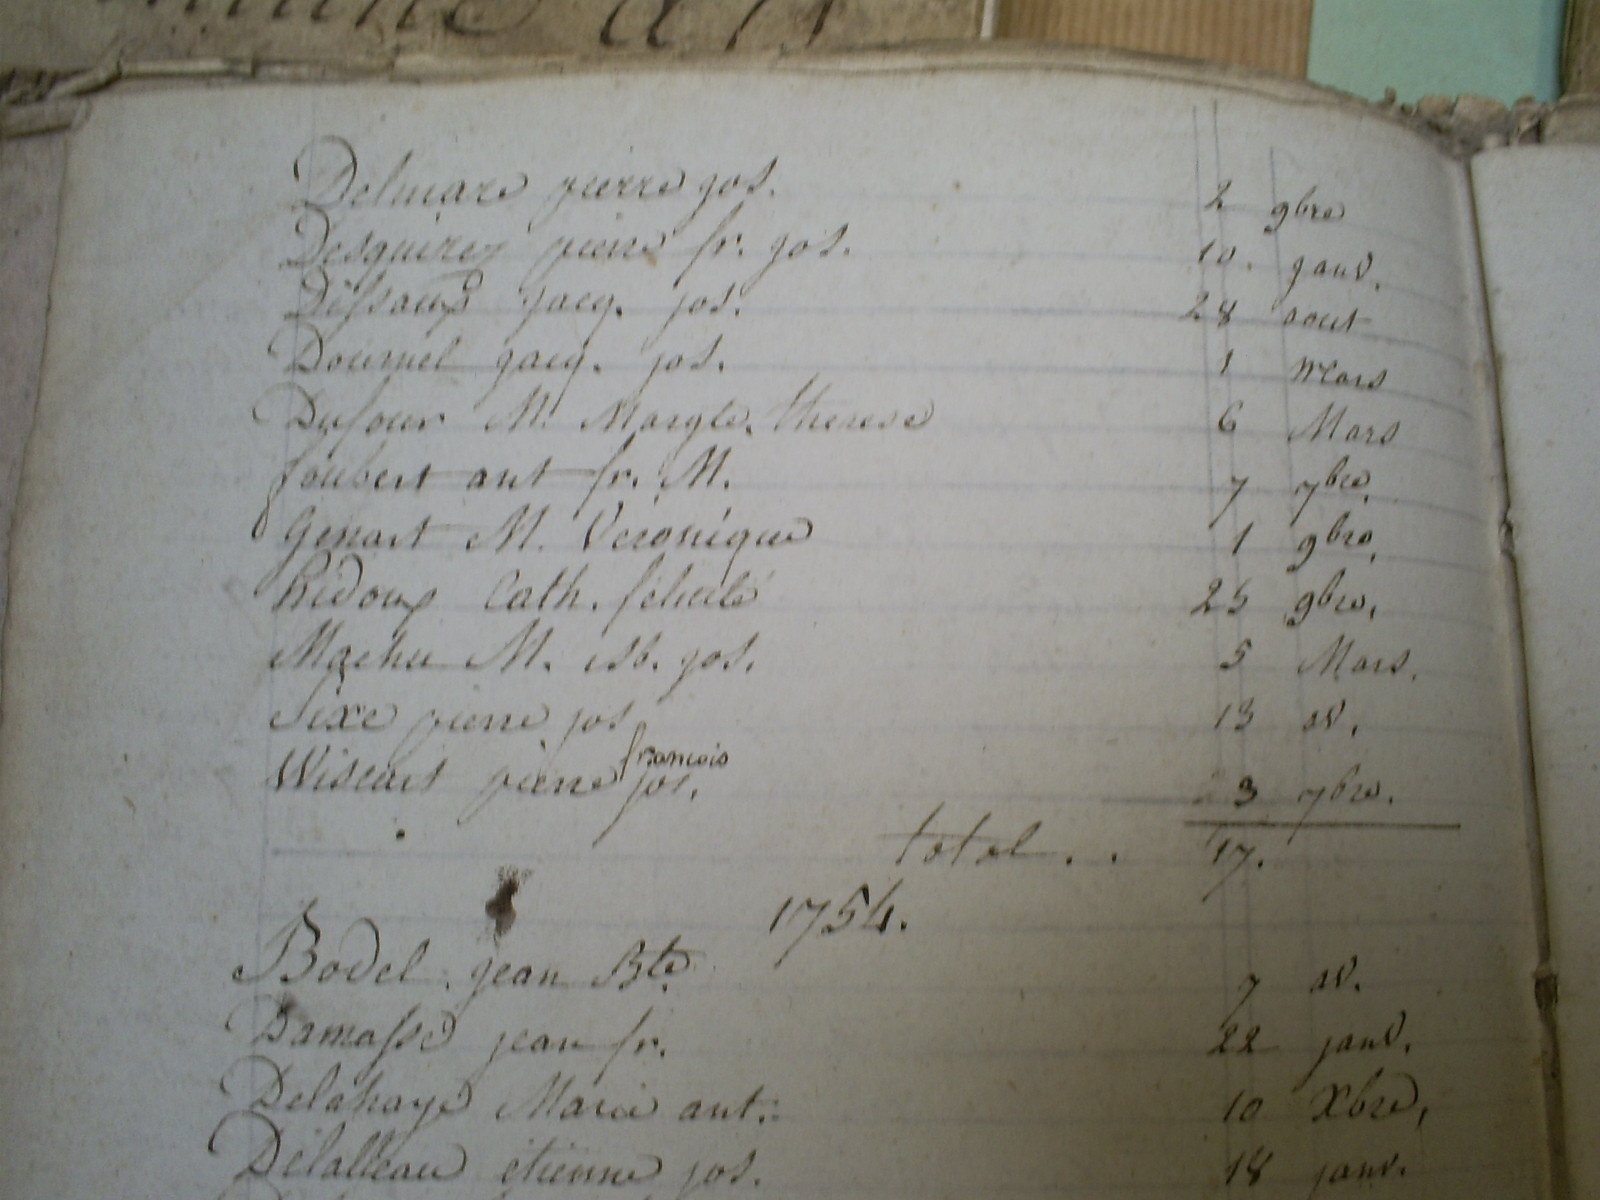 Delmare pierre jos. 2 9bre
Desquirez pierre fr. jos. 10. janv.
Dissaux jacq. jos. 28 aout
Dournel jacq. jos. 1 Mars
Dufour M. Margte. therese 6 Mars
foubert ant fr. M. 7 7bre.
Genart M. Veronique 1 9bre.
hidoux Cath. félicité 25 9bre.
Machu M. isb. jos. 5 Mars.
Sixe pierre jos 13 av.
françois
Wiscart pierre jos. 3 7bre.
total . . 17.
1754.
Bodel jean Bte. 7 av.
Damasse jean fr. 22 janv.
Delahaye Marie ant: 10 Xbre.
Delatteau étienne jos. 18 janv.